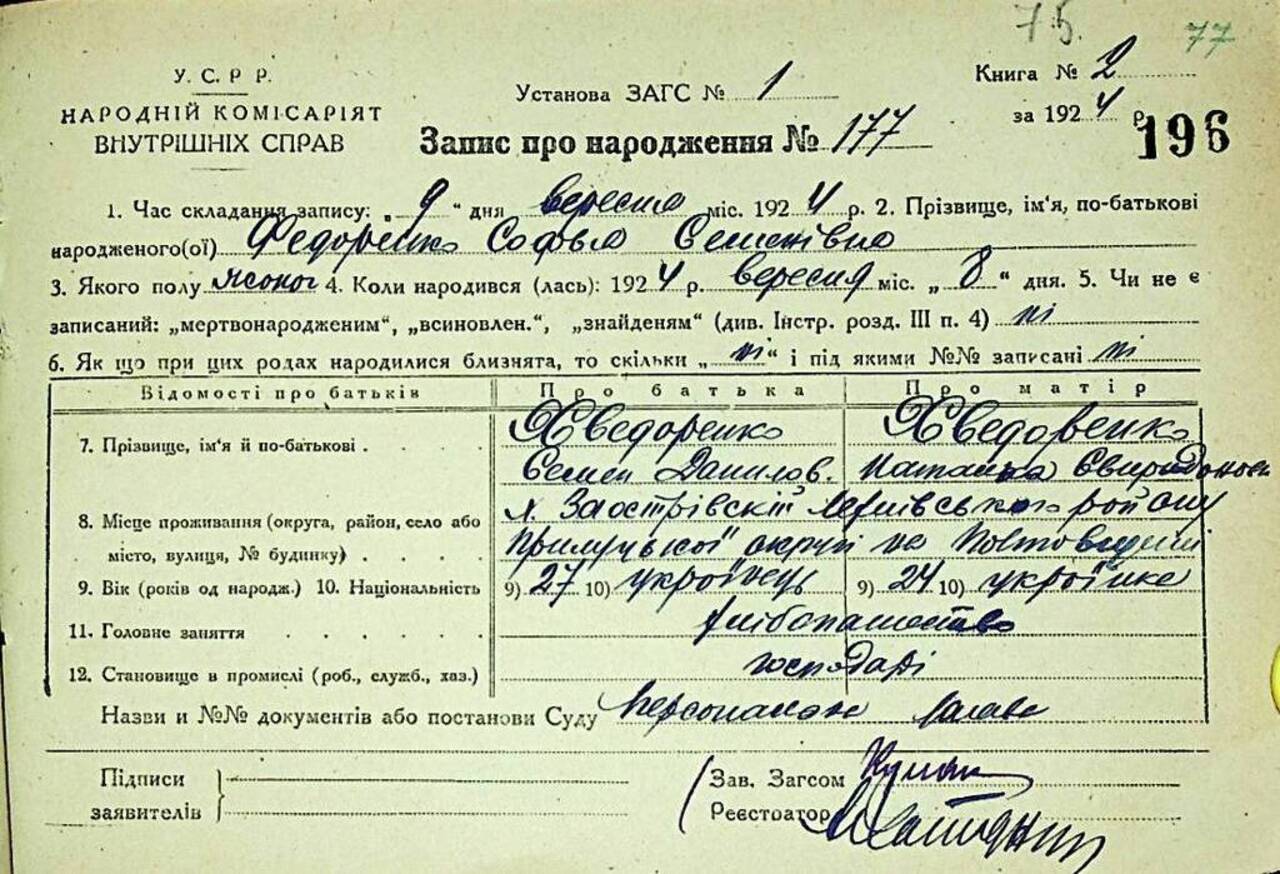 75. 77
У. С. Р Р.
НАРОДНІЙ КОМІСАРІЯТ
ВНУТРІШНІХ СПРАВ
Установа ЗАГС № 1
Книга № 2
за 1924 р.
196
Запис про народження № 177
1. Час складання запису: „ 9 " дня вересня міс. 1924 р. 2. Прізвище, ім'я, по-батькові
народженого(ої) Федоренко Софья Семенівна
3. Якого полу жоног 4. Коли народився (лась): 1924 р. вересня міс. „ 8 " дня. 5. Чи не є
записаний: „мертвонародженим", „всиновлен.", „знайденям" (див. Інстр. розд. III п. 4) ні
6. Як що при цих родах народилися близнята, то скільки „ ні " і під якими №№ записані ні
Відомості про батьків Про батька Про матір
7. Прізвище, ім'я й по-батькові . . . . Хведоренко Хведоренко
Семен Данилов.
8. Місце проживання (округа, район, село або х. Заострівскій району
місто, вулиця, № будинку) . . . . Прилуцької округи на Полтавщині
9. Вік (років од народж.) 10. Національність 9) 27 10) українець 9) 24 10) українка
11. Головне заняття . . . . . . хлібопашество
12. Становище в промислі (роб., служб., хаз.) господарі
Назви и №№ документів або постанови Суду
Підписи
заявителів
Зав. Загсом
Реєстратор